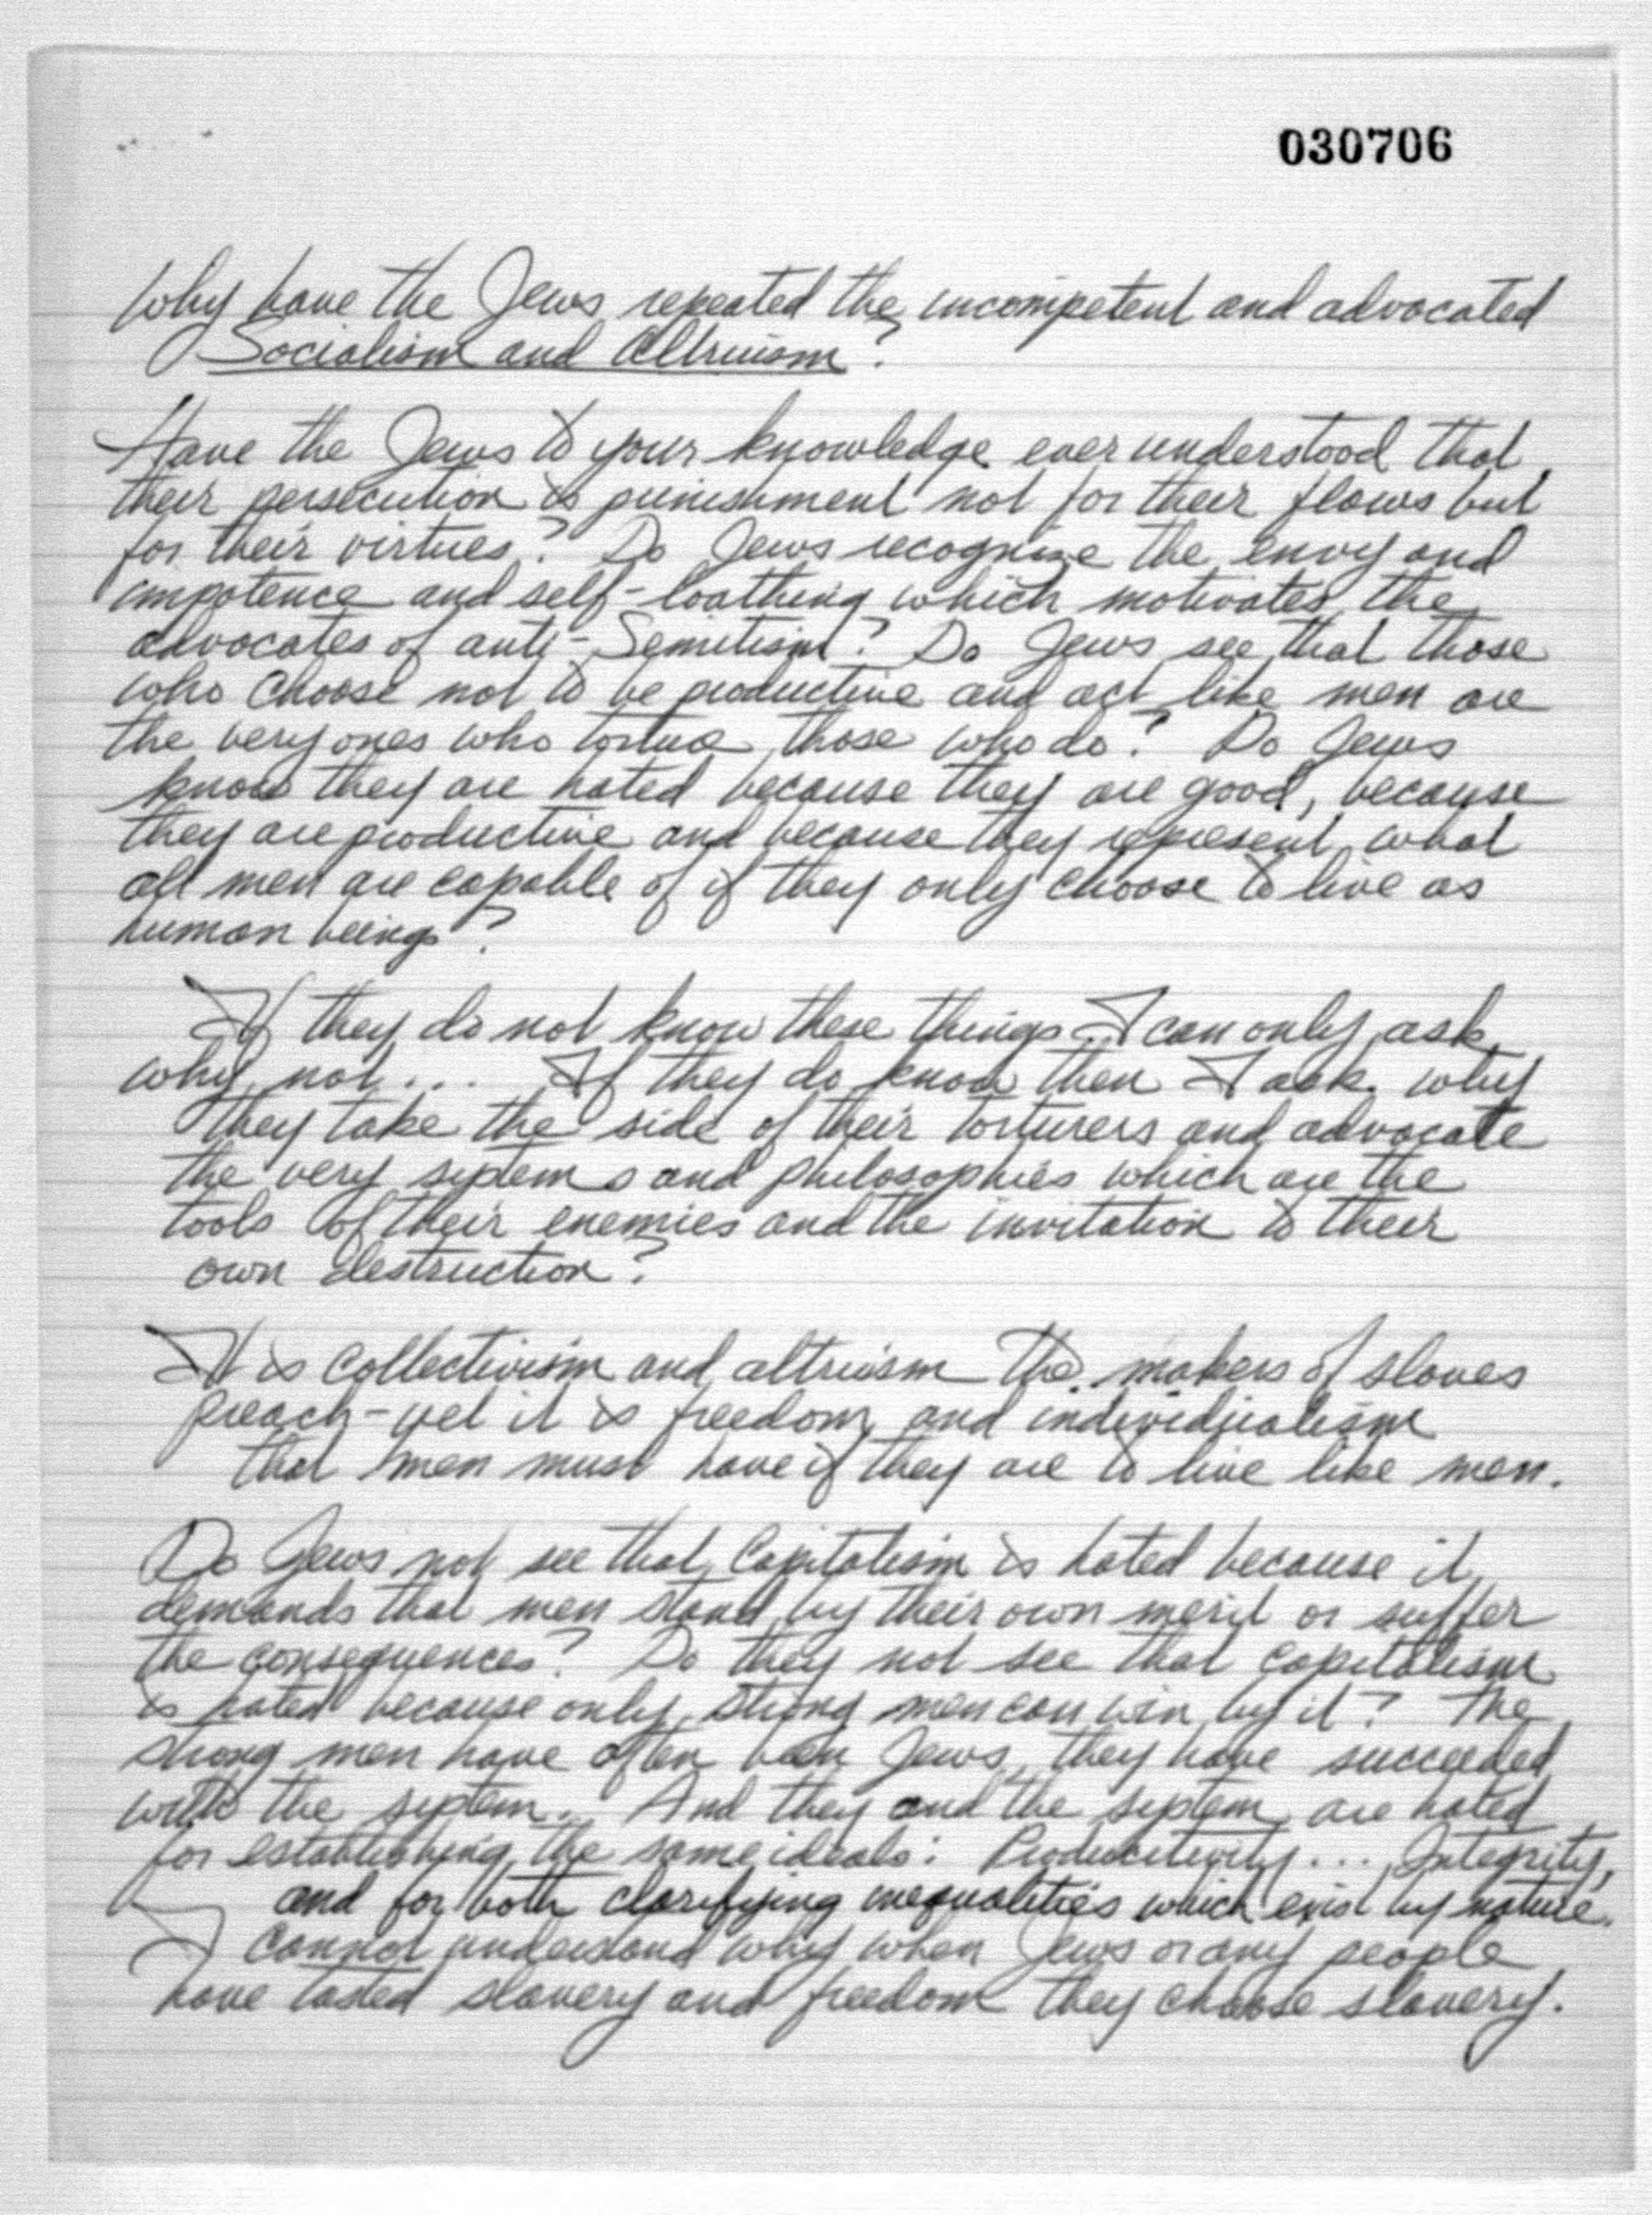 030706
Why have the Jews repeated the incompetent and advocated
Socialism and Altruism?
Have the Jews to your knowledge ever understood that
their persecution is punishment not for their flaws but
for their virtues? Do Jews recognize the envy and
impotence and self-loathing which motivates the
advocates of anti-Semitism? Do Jews see that those
who choose not to be productive and act like men are
the very ones who torture those who do? Do Jews
know they are hated because they are good, because
they are productive and because they represent what
all men are capable of if they only choose to live as
human beings?
If they do not know these things I can only ask
why not.... If they do know then I ask why
they take the side of their torturers and advocate
the very systems and philosophies which are the
tools of their enemies and the invitation to their
own destruction?
It is collectivism and altruism the makers of slaves
preach - yet it is freedom and individualism
that men must have if they are to live like men.
Do Jews not see that Capitalism is hated because it
demands that men stand by their own merit or suffer
the consequences? Do they not see that capitalism
is hated because only strong men can win by it? The
strong men have often been Jews, they have succeeded
with the system. And they and the system are hated
for establishing the same ideals: Productivity... Integrity,
and for both clarifying inequalities which exist by nature.
I cannot understand why when Jews or any people
have tasted slavery and freedom they choose slavery.